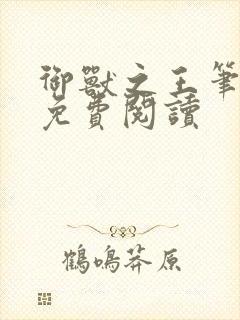 御獸之王筆
免費閱讀
鶴鳴莽原